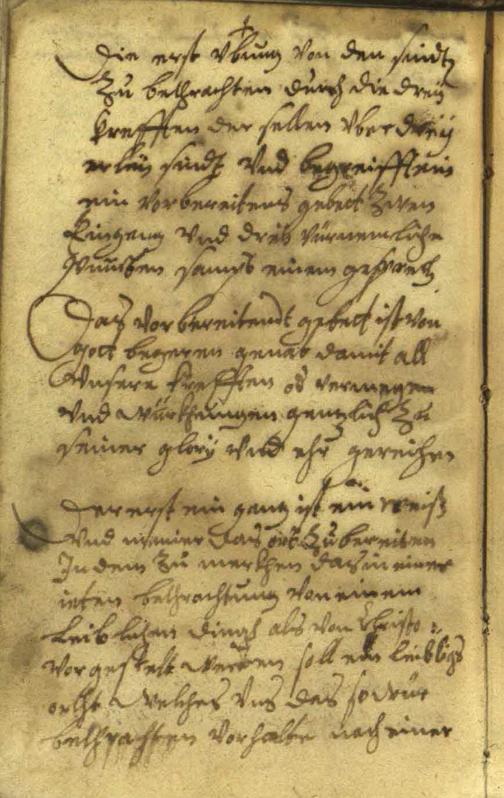 Die erst vbung von den sindt
Zu bethrachten durch die dreÿ
krefften der sellen vber dreÿ
erleÿ sindt vnd begreifft ein
ein vorbereitens gebett zwen
Eingang vnd dreÿ vürnemliche
Puncten sampt einem gesprech
Das vorbereitendt gebett ist von
gott begeren genad damit all
vnsere krefften od vermegen
vnd würkhungen gentzlich zu
seiner glorÿ vnd ehr gereichen
Der erst ein gang ist ein weiß
vnd manier das ort zu bereiten
In dem zu merkhen das in einer
ieten bethrachtung von einem
leiblichen dingh als von Christo
vorgestelt werden soll ein leibligs
orth welches vns das so wür
bethrachten vorhalte nach einer